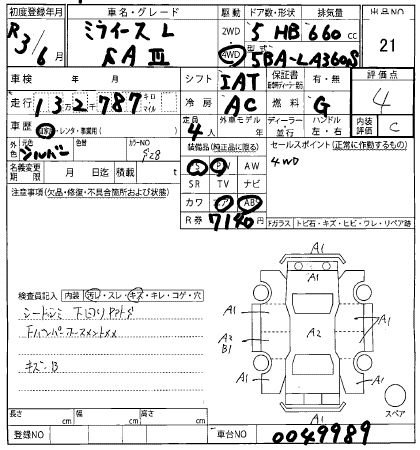 初度登録年月 車名・グレード 駆動 ドア数・形状 排気量 出品NO
R3/6 ミライース L SAⅢ 2WD 4WD 5 HB 660 cc 21
型式 5BA-LA360S
車検 年 月 シフト IAT 保証書 評価点 4
走行 132787 万 千 キロ マイル 冷房 AC 燃料 G
車歴 自家用・レンタ・事業用( ) 定員 4人 外車モデル 年 ディーラー 並行 ハンドル 左・右 内装評価 C
外色 元色 シルバー 色替 カラーNO S28 装備品(純正品に限る) セールスポイント(正常に作動するもの)
名義変更期限 月 日迄 積載 t PS PW AW 4WD
注意事項(欠品・修復・不具合箇所および状態) SR TV ナビ
カワ エア ABS
R券 7140円 Fガラス トビ石・キズ・ヒビ・ワレ・リペア跡
検査員記入 内装 汚れ・スレ・キズ・キレ・コゲ・穴
シートシミ
キズ B
A1
A1
A1 A1
A2 B1 A2
A1 A1
A1
スペア
長さ cm 幅 cm 高さ cm
登録NO 車台NO 0049989